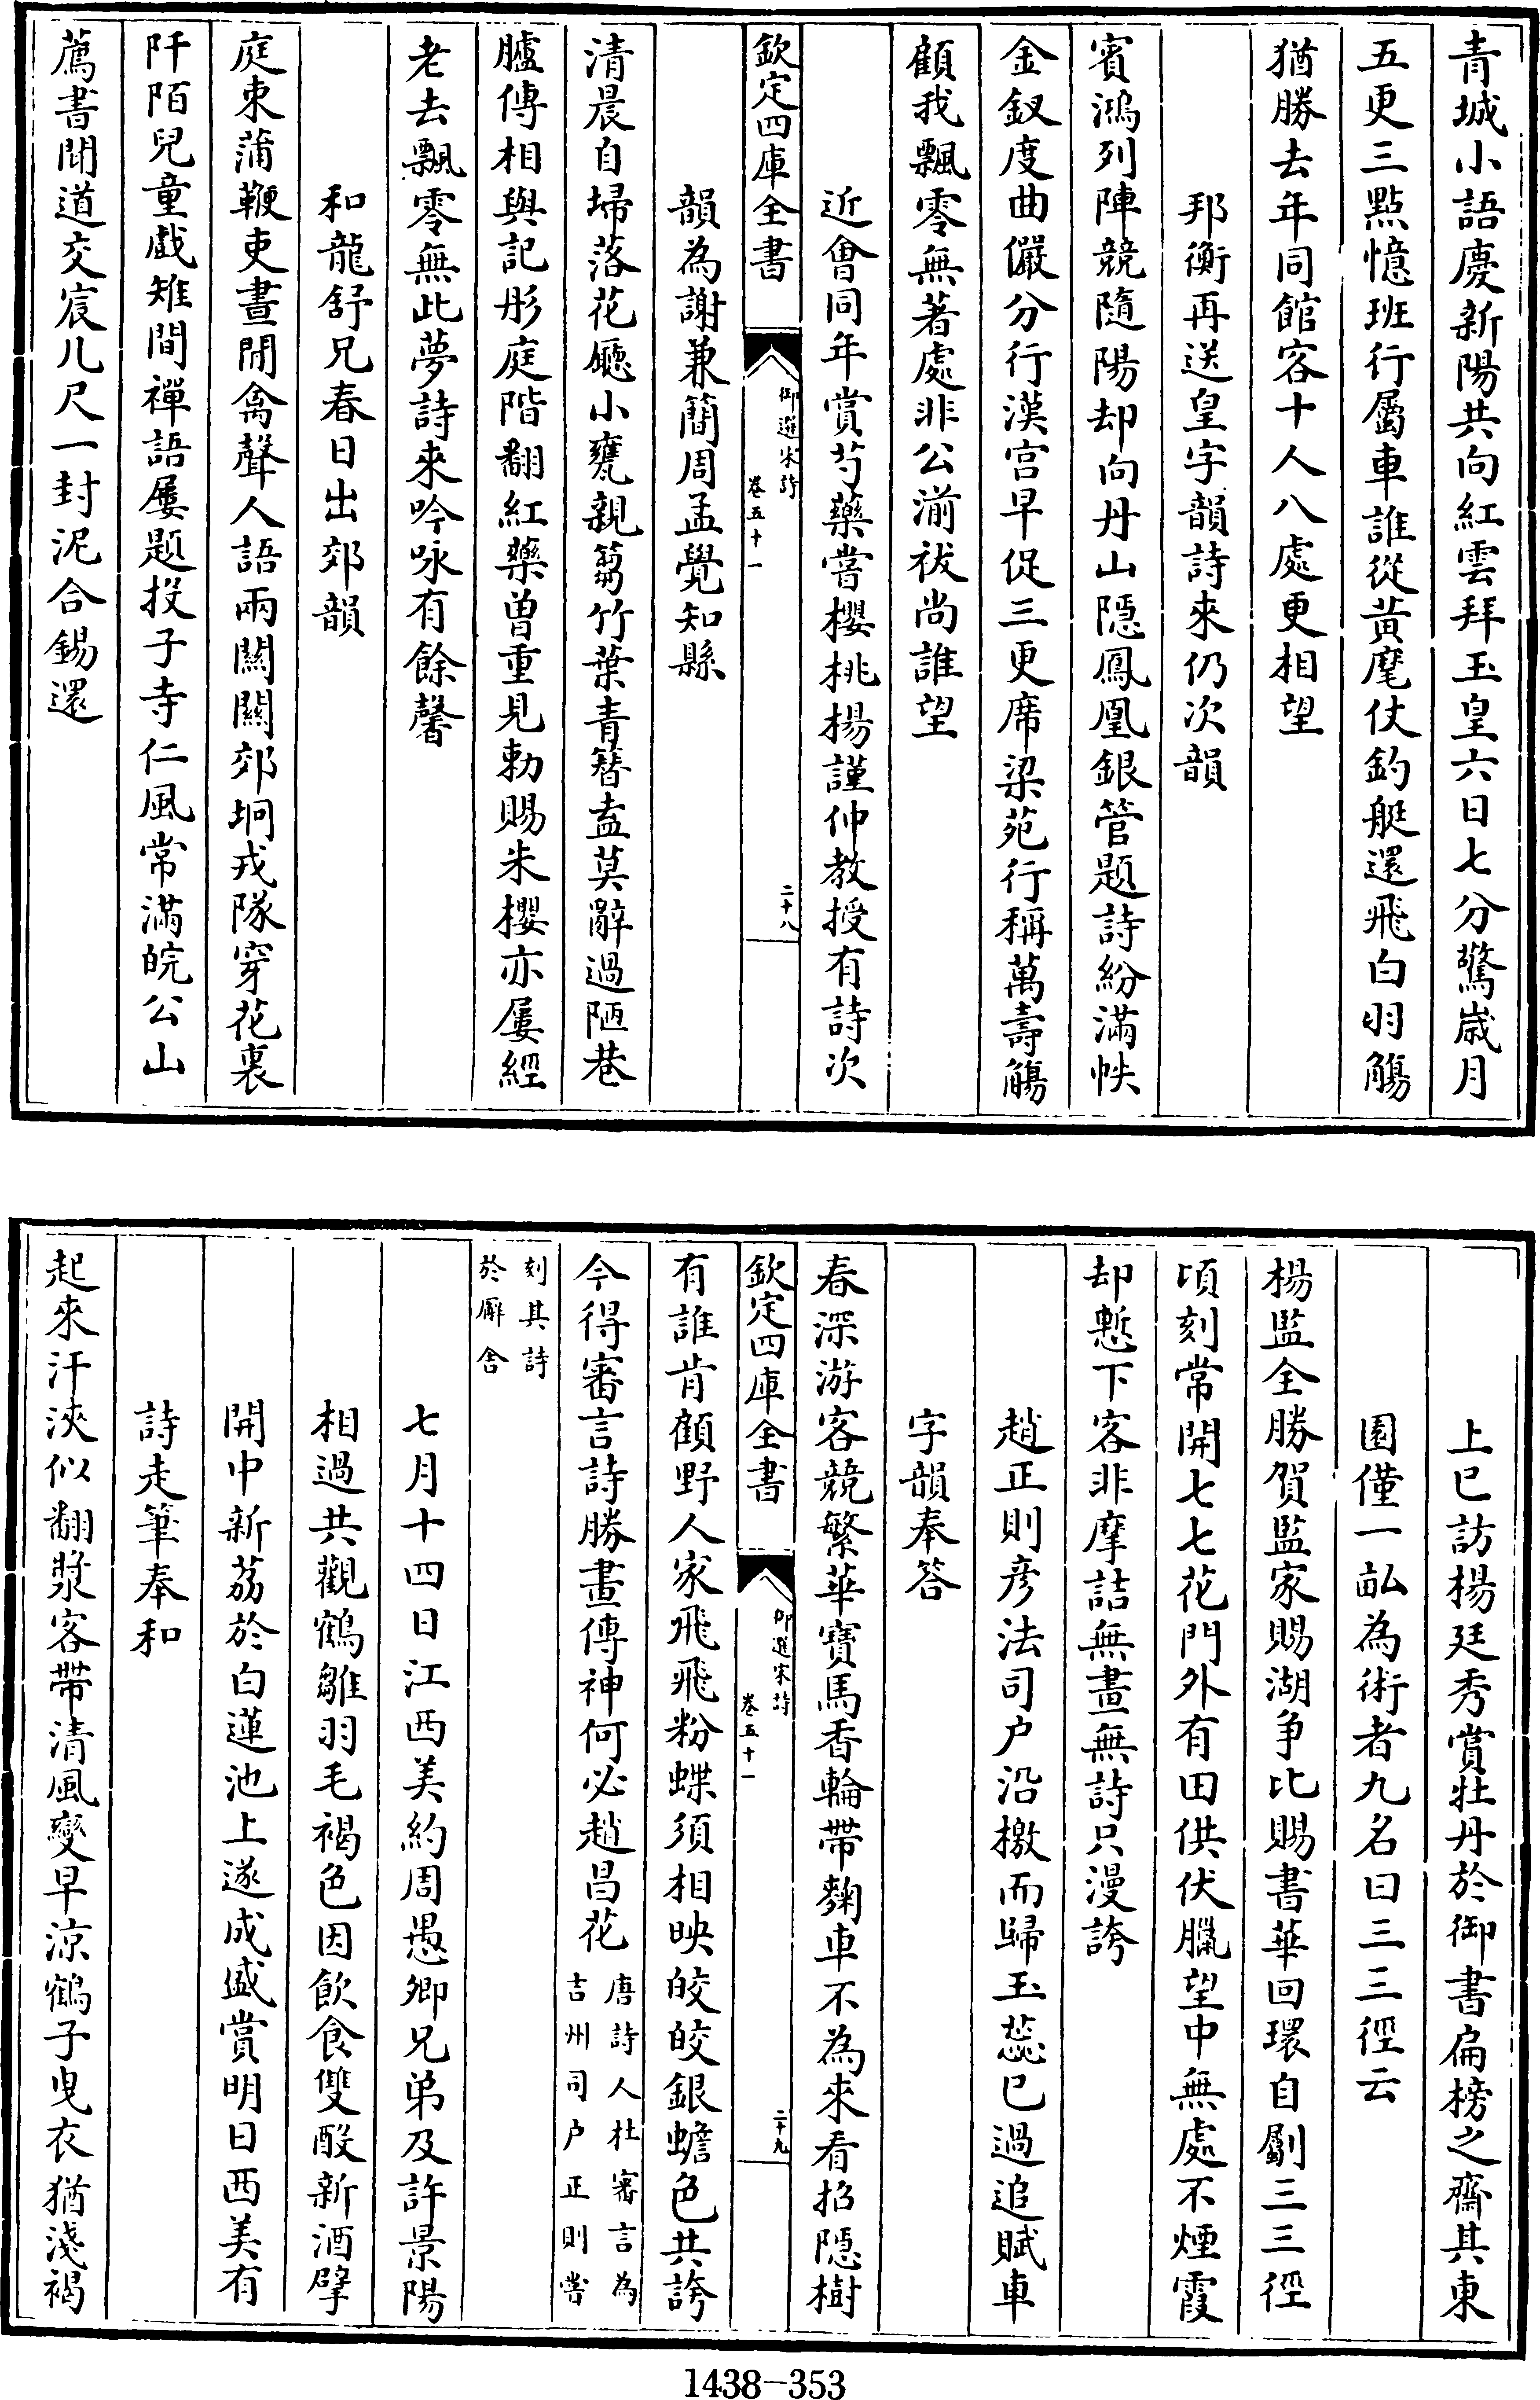 青城小語慶新陽共向紅雲拜玉皇六日七分驚歳月
五更三點憶班行屬車誰從黄麾仗釣艇還飛白羽觴
猶勝去年同館客十人八處更相望
邦衡再送皇字韻詩來仍次韻
賓鴻列陣競隨陽却向丹山隠鳳凰銀管題詩紛滿帙
金釵度曲儼分行漢宫早促三更席梁苑行稱萬壽觴
顧我飄零無著處非公湔祓尚誰望
近會同年賞芍藥嘗櫻桃楊謹仲教授有詩次
欽定四庫全書
御選宋詩
卷五十一
二十八
韻為謝兼簡周孟覺知縣
清晨自埽落花廳小甕親篘竹葉青簮盍莫辭過陋巷
臚傳相與記彤庭階翻紅藥曽重見勅賜朱櫻亦屢經
老去飄零無此夢詩來吟咏有餘馨
和龍舒兄春日出郊韻
庭束蒲鞭吏晝閒禽聲人語兩闗闗郊坰戎隊穿花裏
阡陌兒童戲雉間禪語屢題投子寺仁風常滿皖公山
薦書聞道交宸几尺一封泥合錫還
上巳訪楊廷秀賞牡丹於御書扁榜之齋其東
園僅一畝為術者九名曰三三徑云
楊監全勝賀監家賜湖争比賜書華回環自斸三三徑
頃刻常開七七花門外有田供伏臘望中無處不煙霞
却慙下客非摩詰無畫無詩只漫誇
趙正則彦法司户沿檄而歸玉蕊已過追賦車
字韻奉答
春深游客競繁華寶馬香輪帶麴車不為來看招隠樹
欽定四庫全書
御選宋詩
卷五十一
二十九
有誰肯顧野人家飛飛粉蝶須相映皎皎銀蟾色共誇
今得審言詩勝畫傳神何必趙昌花
唐詩人杜審言為
吉州司户正則嘗
刻其詩
於廨舍
七月十四日江西美約周愚卿兄弟及許景陽
相過共觀鶴雛羽毛褐色因飲食雙酘新酒擘
開中新荔於白蓮池上遂成盛賞明日西美有
詩走筆奉和
起來汗浹似翻漿客帶清風變早涼鶴子曳衣猶淺褐
1438-353